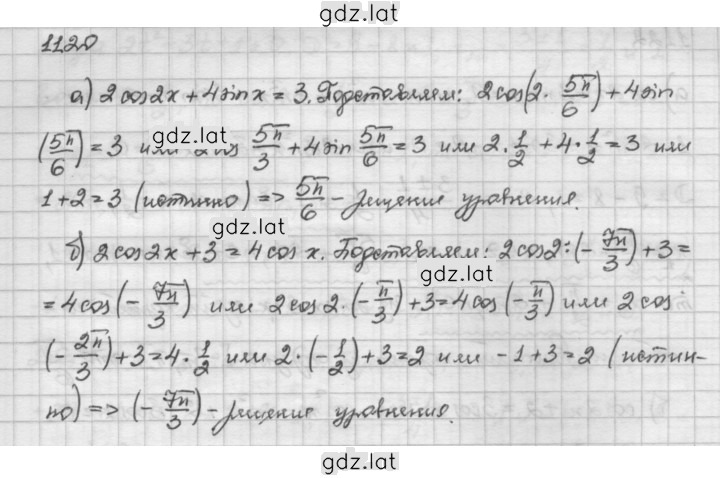 gdz.lat
1120
а) 2 cos 2x + 4 sin x = 3. Подставляем: 2 cos(2 · 5π/6) + 4 sin
(5π/6) = 3 или 2 cos 5π/3 + 4 sin 5π/6 = 3 или 2 · 1/2 + 4 · 1/2 = 3 или
gdz.lat
1 + 2 = 3 (истинно) => 5π/6 - решение уравнения.
б) 2 cos 2x + 3 = 4 cos x. Подставляем: 2 cos 2 · (- 7π/3) + 3 =
gdz.lat
= 4 cos (- 7π/3) или 2 cos 2 · (- π/3) + 3 = 4 cos (- π/3) или 2 cos
(- 2π/3) + 3 = 4 · 1/2 или 2 · (- 1/2) + 3 = 2 или - 1 + 3 = 2 (истин-
gdz.lat
но) => (- 7π/3) - решение уравнения.
gdz.lat